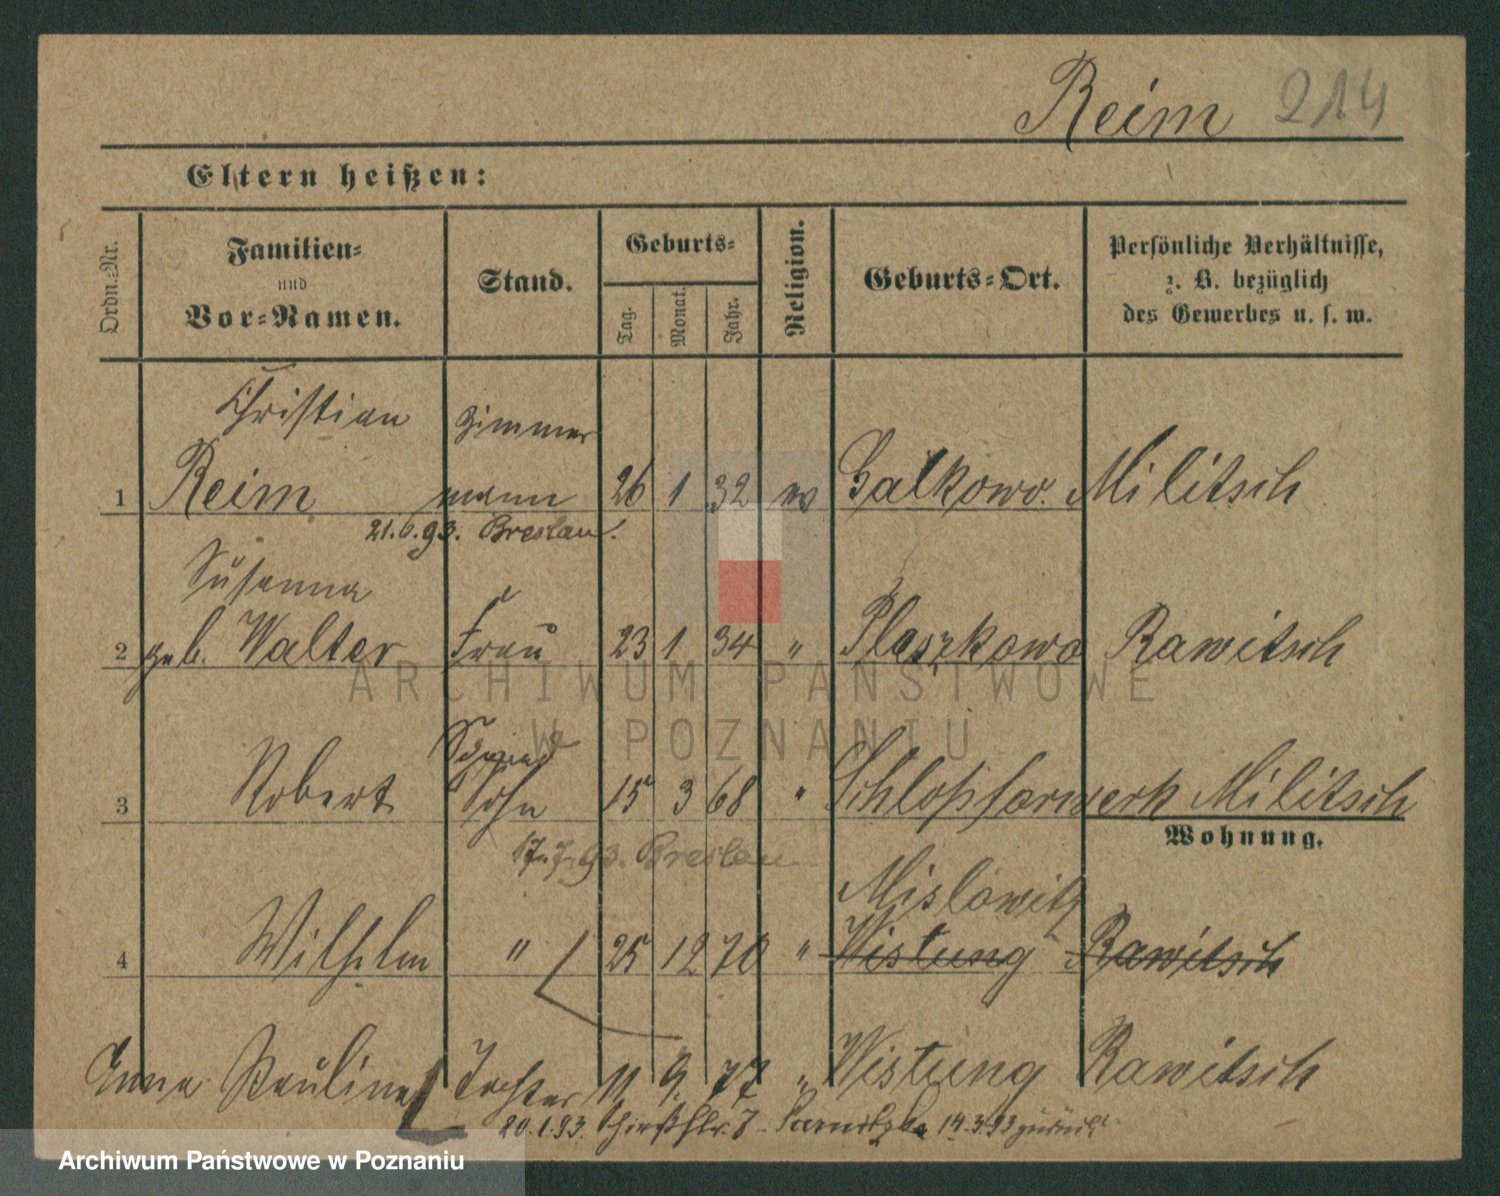 Reim 214
Eltern heißen:
Ordn.-Nr.
Familien-
und
Vor-Namen.
Stand.
Geburts-
Tag.
Monat.
Jahr.
Religion.
Geburts-Ort.
Persönliche Verhältnisse,
z. B. bezüglich
des Gewerbes u. s. w.
Christian Zimmer
1 Reim mann 26 1 32 ev Galkowo. Militsch
21.6.93. Breslau.
Susanna
2 geb. Walter Frau 23 1 34 " Plaszkowo Rawitsch
3 Robert Sohn 15 3 68 " Schloßforwerk Militsch
Wohnung.
17.7.93. Breslau
Mislowitz
4 Wilhelm " 25 12 70 " Wistung Rawitsch
Anna Pauline Tochter 11 9. 77 " Wistung Rawitsch
20.1.93. Schießstr. 7. 14.3.93 zurück
ARCHIWUM PAŃSTWOWE
W POZNANIU
Archiwum Państwowe w Poznaniu